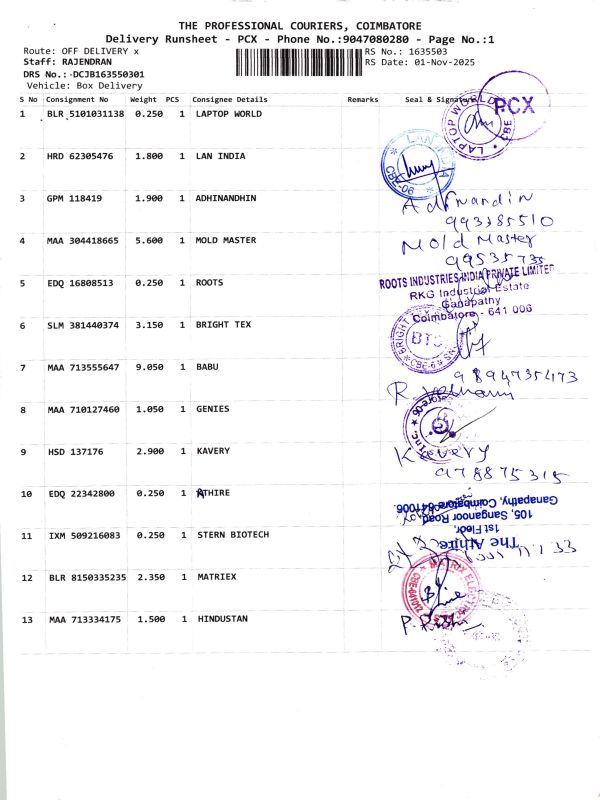 THE PROFESSIONAL COURIERS, COIMBATORE
Delivery Runsheet - PCX - Phone No.:9047080280 - Page No.:1
Route: OFF DELIVERY x RS No.: 1635503
Staff: RAJENDRAN RS Date: 01-Nov-2025
DRS No.: DCJB163550301
Vehicle: Box Delivery
S No Consignment No Weight PCS Consignee Details Remarks Seal & Signature
1 BLR 5101031138 0.250 1 LAPTOP WORLD
LAPTOP WORLD CBE
PCX
2 HRD 62305476 1.800 1 LAN INDIA
LAN INDIA
3 GPM 118419 1.900 1 ADHINANDHIN
Adhinandin
993385510
4 MAA 304418665 5.600 1 MOLD MASTER
Mold Master
99535735
5 EDQ 16808513 0.250 1 ROOTS
ROOTS INDUSTRIES INDIA PRIVATE LIMITED
RKG Industrial Estate
Ganapathy
Coimbatore - 641 006
6 SLM 381440374 3.150 1 BRIGHT TEX
BRIGHT
BTS
CBE-6
7 MAA 713555647 9.050 1 BABU
9894735473
8 MAA 710127460 1.050 1 GENIES
9 HSD 137176 2.900 1 KAVERY
Kavery
978875315
10 EDQ 22342800 0.250 1 ATHIRE
The Athire
1st Floor,
105, Sanganoor Road,
Ganapathy, Coimbatore-641006.
11 IXM 509216083 0.250 1 STERN BIOTECH
12 BLR 8150335235 2.350 1 MATRIEX
MATRIX
13 MAA 713334175 1.500 1 HINDUSTAN